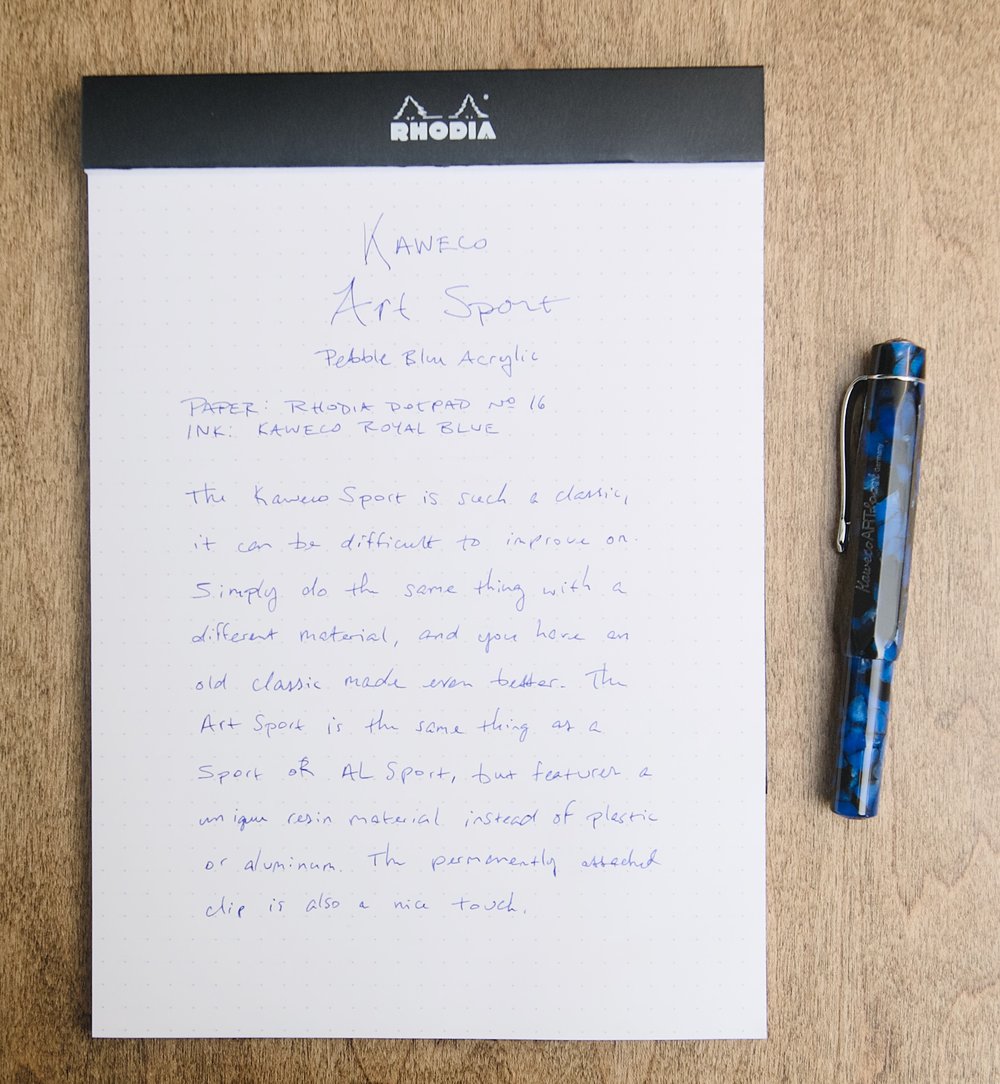 RHODIA
KAWECO
Art Sport
Pebble Blue Acrylic
PAPER: RHODIA DOTPAD Nº 16
INK: KAWECO ROYAL BLUE
The Kaweco Sport is such a classic,
it can be difficult to improve on.
Simply do the same thing with a
different material, and you have an
old classic made even better. The
Art Sport is the same thing as a
Sport OR AL Sport, but features a
unique resin material instead of plastic
or aluminum. The permanently attached
clip is also a nice touch.
Kaweco ART Germany